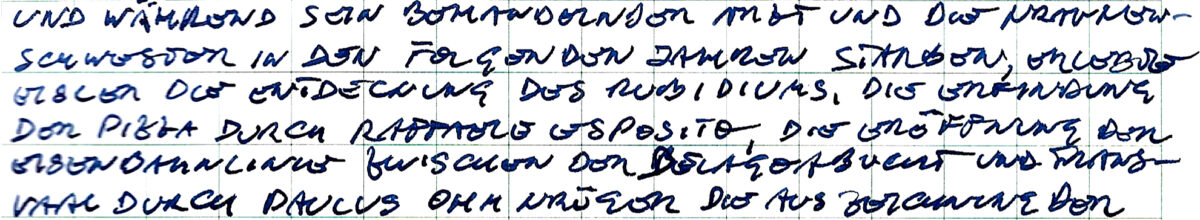 UND WÄHREND SEIN BEHANDELNDER ARZT UND DIE KRANKEN-
SCHWESTER IN DEN FOLGENDEN JAHREN STARBEN, ERLEBTE
EISLER DIE ENTDECKUNG DES RUBIDIUMS, DIE ERFINDUNG
DER PIZZA DURCH RAFFAELE ESPOSITO, DIE ERÖFFNUNG DER
EISENBAHNLINIE ZWISCHEN DER DELAGOABUCHT UND TRANS-
VAAL DURCH PAULUS OHM KRÜGER DIE AUSZEICHNUNG DER